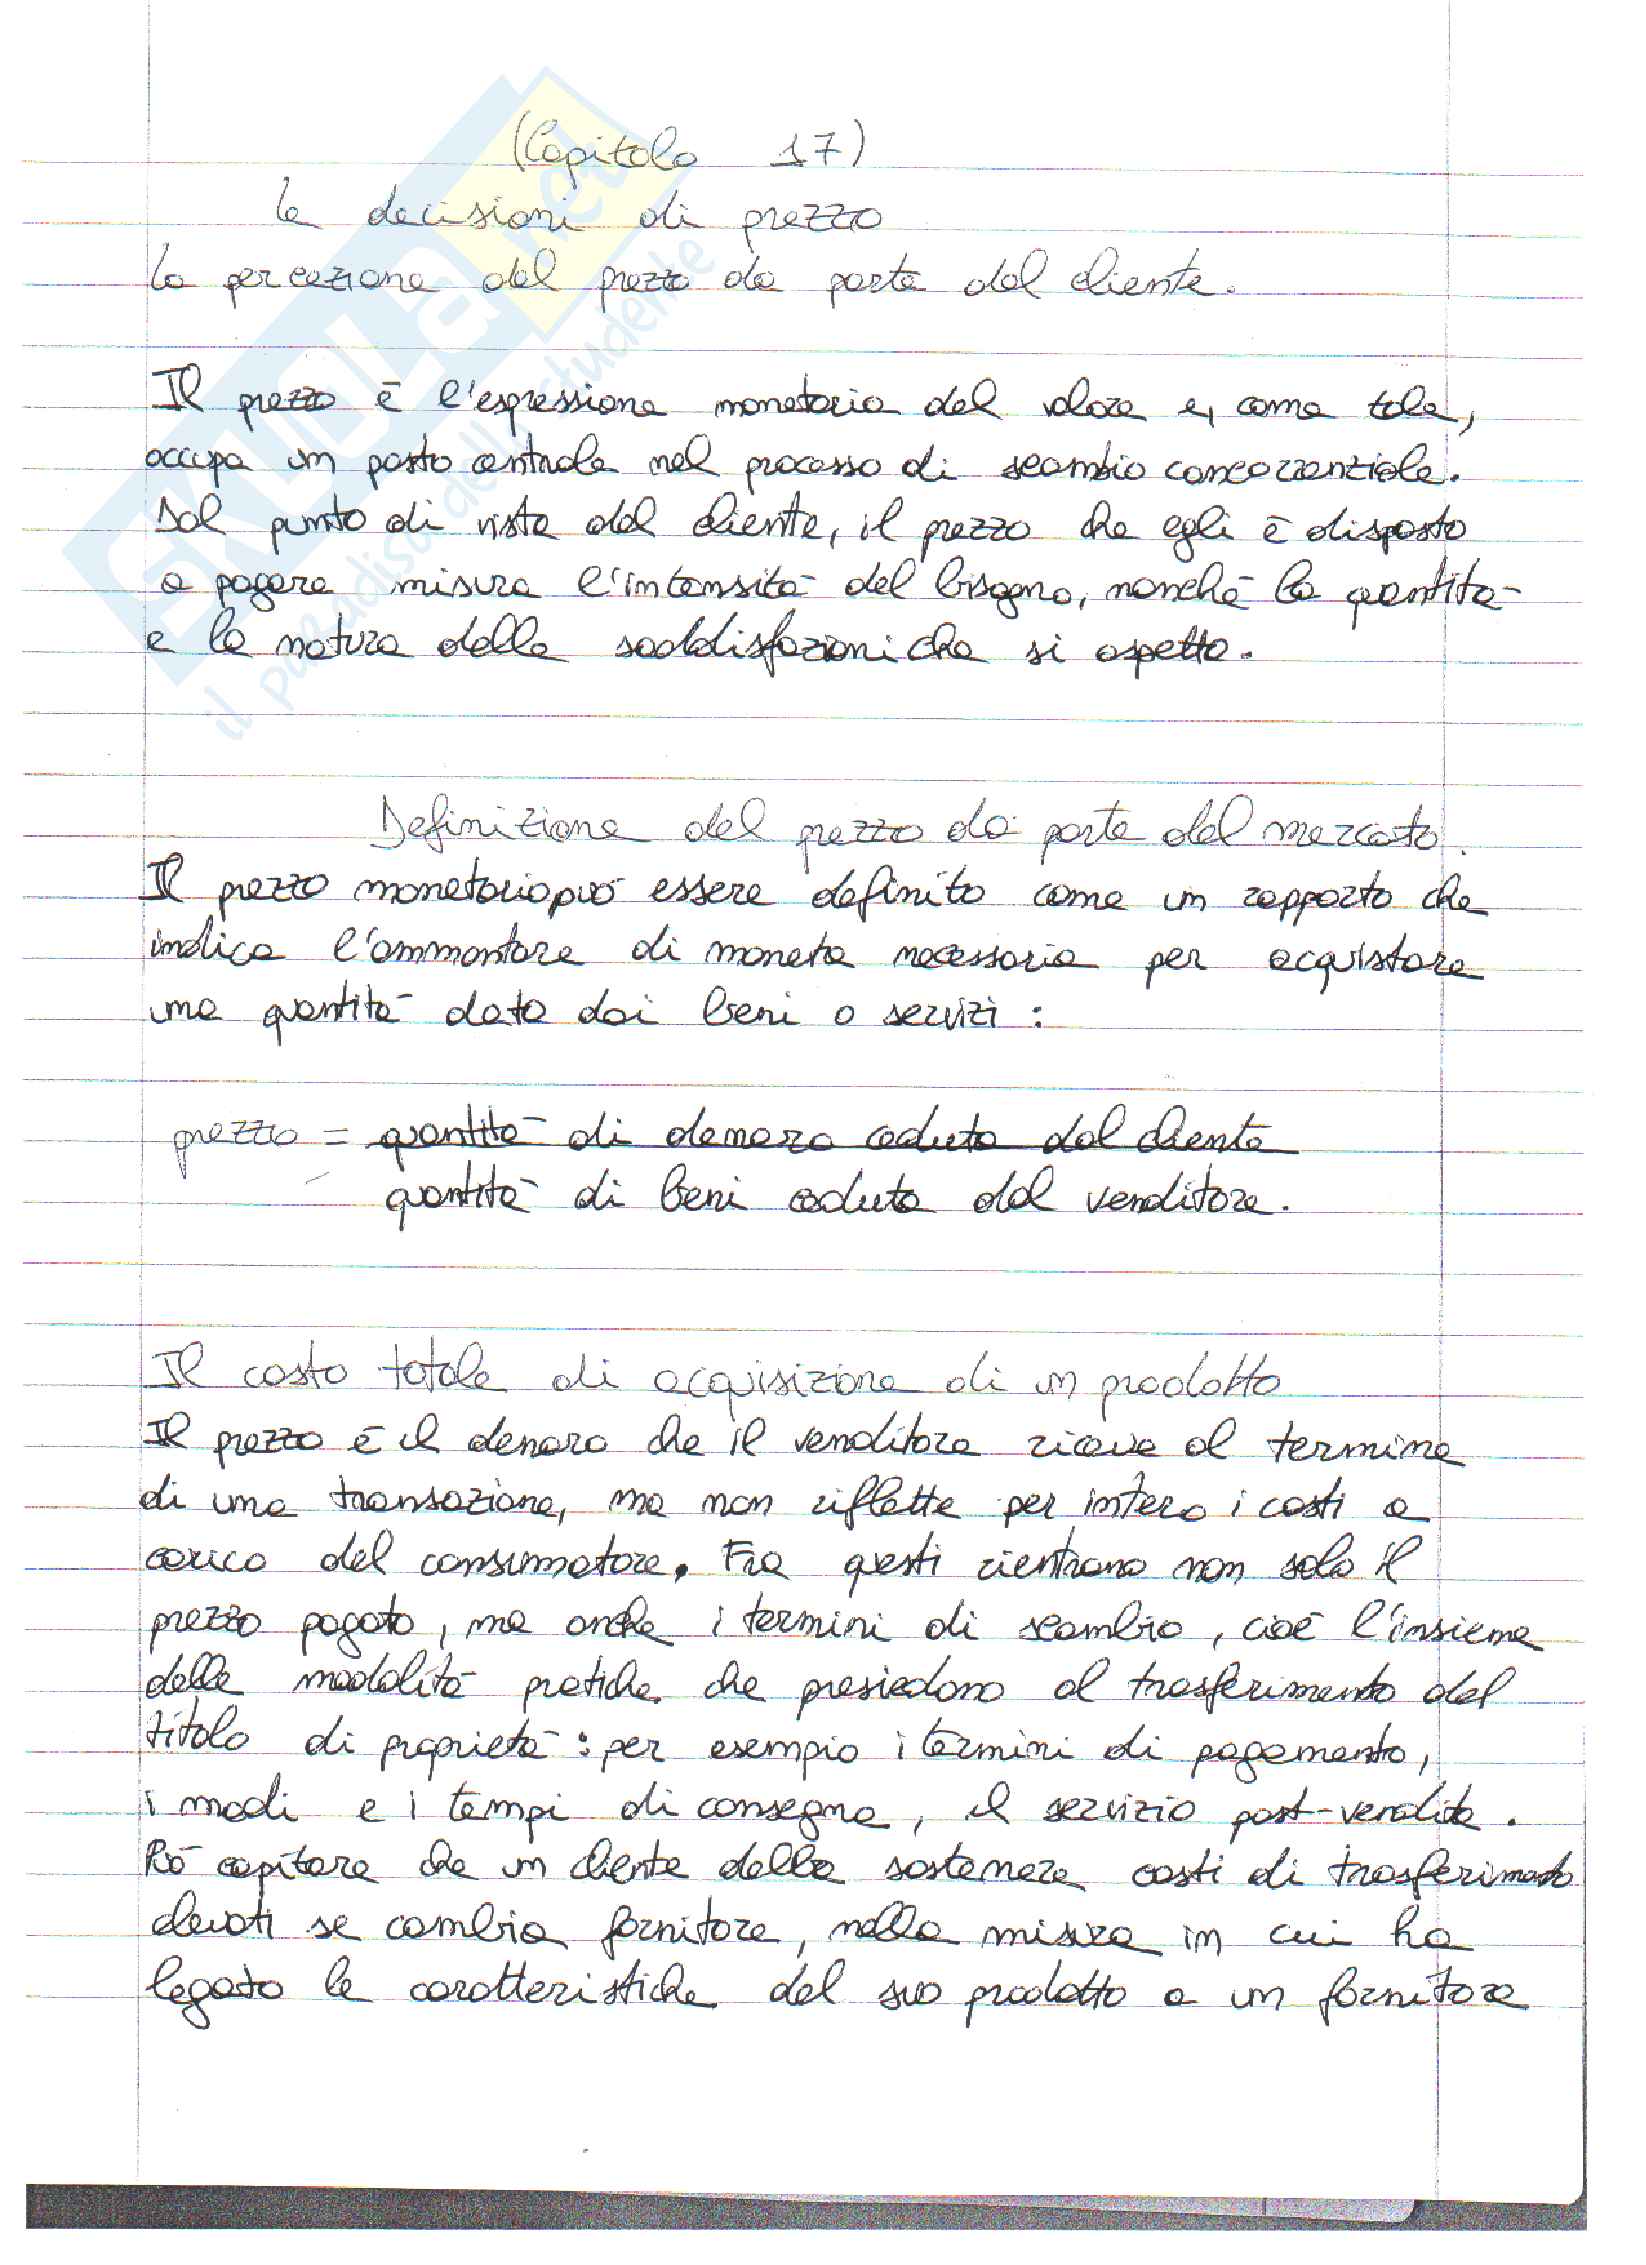 (Capitolo 17)
Le decisioni di prezzo
La percezione del prezzo da parte del cliente.
Il prezzo è l'espressione monetaria del valore e, come tale,
occupa un posto centrale nel processo di scambio concorrenziale.
Dal punto di vista del cliente, il prezzo che egli è disposto
a pagare misura l'intensità del bisogno, nonché la quantità
e la natura delle soddisfazioni che si aspetta.
Definizione del prezzo da parte del mercato.
Il prezzo monetario può essere definito come un rapporto che
indica l'ammontare di moneta necessaria per acquistare
una quantità data dai beni o servizi:
prezzo = quantità di denaro ceduta dal cliente
quantità di beni ceduta dal venditore.
Il costo totale di acquisizione di un prodotto
Il prezzo è il denaro che il venditore riceve al termine
di una transazione, ma non riflette per intero i costi a
carico del consumatore. Fra questi rientrano non solo il
prezzo pagato, ma anche i termini di scambio, cioè l'insieme
delle modalità pratiche che presiedono al trasferimento del
titolo di proprietà: per esempio i termini di pagamento,
i modi e i tempi di consegna, il servizio post-vendita.
Può capitare che un cliente debba sostenere costi di trasferimento
elevati se cambia fornitore, nella misura in cui ha
legato le caratteristiche del suo prodotto a un fornitore
SKUOLA.net
il paradiso dello studente